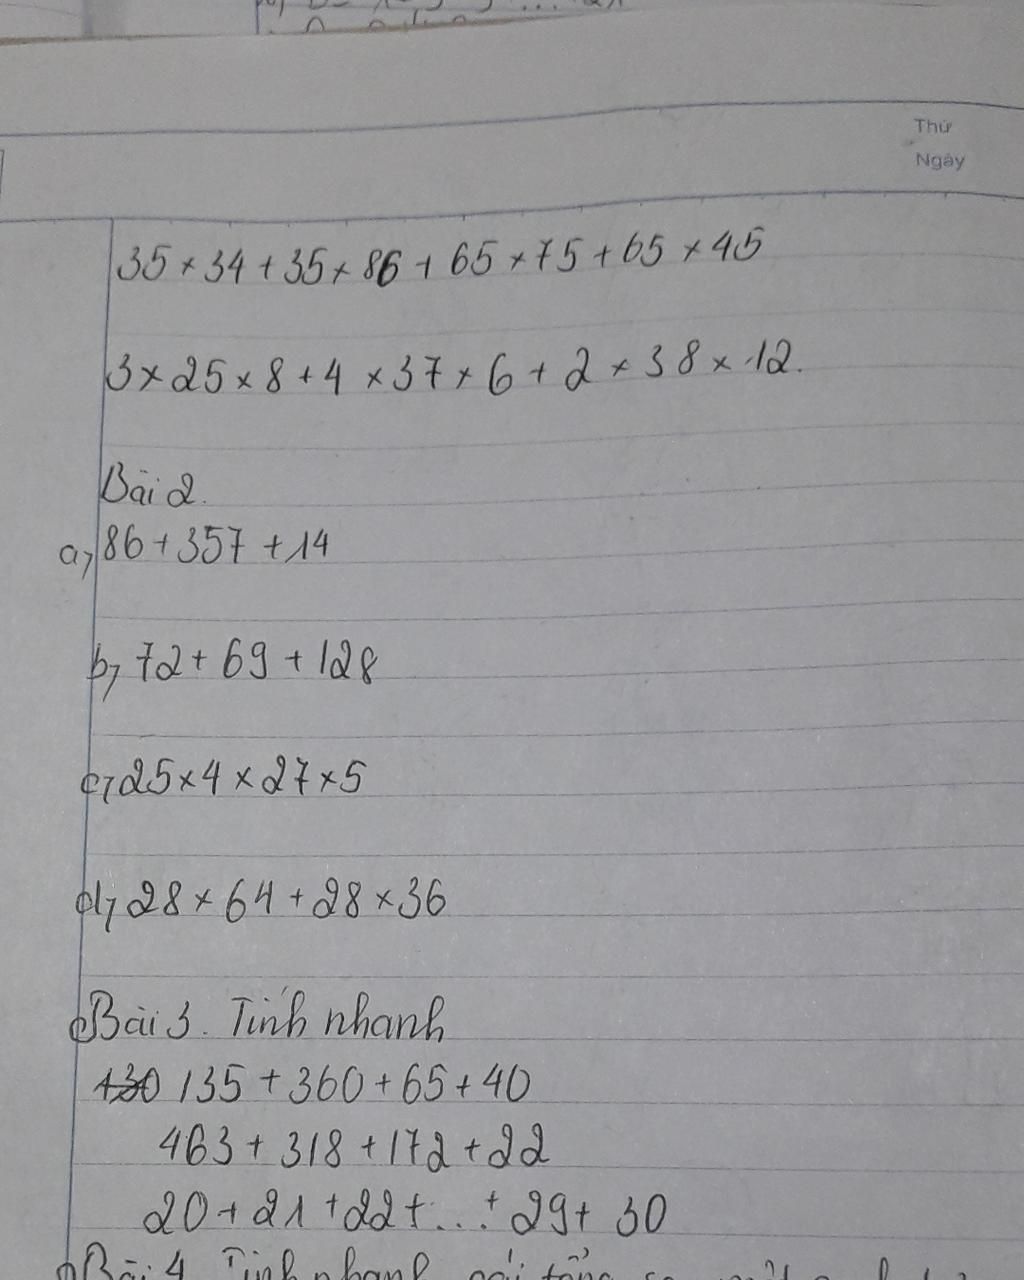 Thứ
Ngày
35 × 34 + 35 × 86 + 65 × 75 + 65 × 45
3 × 25 × 8 + 4 × 37 × 6 + 2 × 38 × 12.
Bài 2.
a, 86 + 357 + 14
b, 72 + 69 + 128
c, 25 × 4 × 27 × 5
d, 28 × 64 + 28 × 36
Bài 3. Tính nhanh
135 + 360 + 65 + 40
463 + 318 + 172 + 22
20 + 21 + 22 + ... + 29 + 30
Bài 4 Tính nhanh